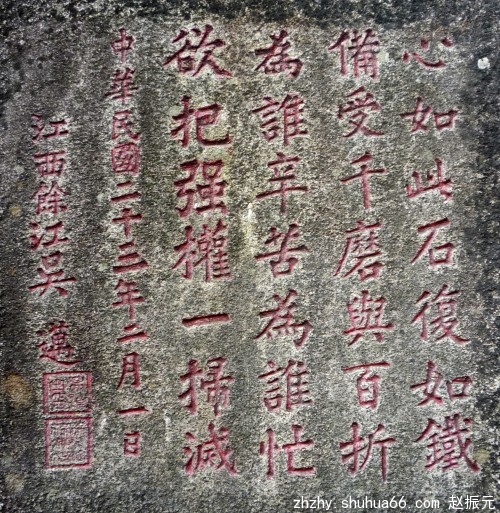 心如此石復如鐵
備受千磨與百折
為誰辛苦為誰忙
欲把强權一掃滅
中華民國二十三年二月一日
江西餘江吴邁
zhzhy.shuhua66.com 赵振元